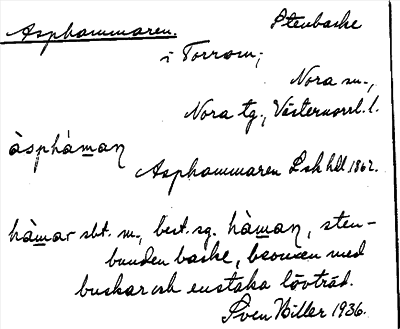 Asphammaren. Stenbacke
i Torrom,
Nora sn.,
Nora tg., Västernorrl. l.
àsphàman
Asphammaren Lsk hdl 1862.
hàmar sbt. m., best. sg. hàman, sten-
bunden backe, beväxen med
buskar och enstaka lövträd.
Sven Biller 1936.